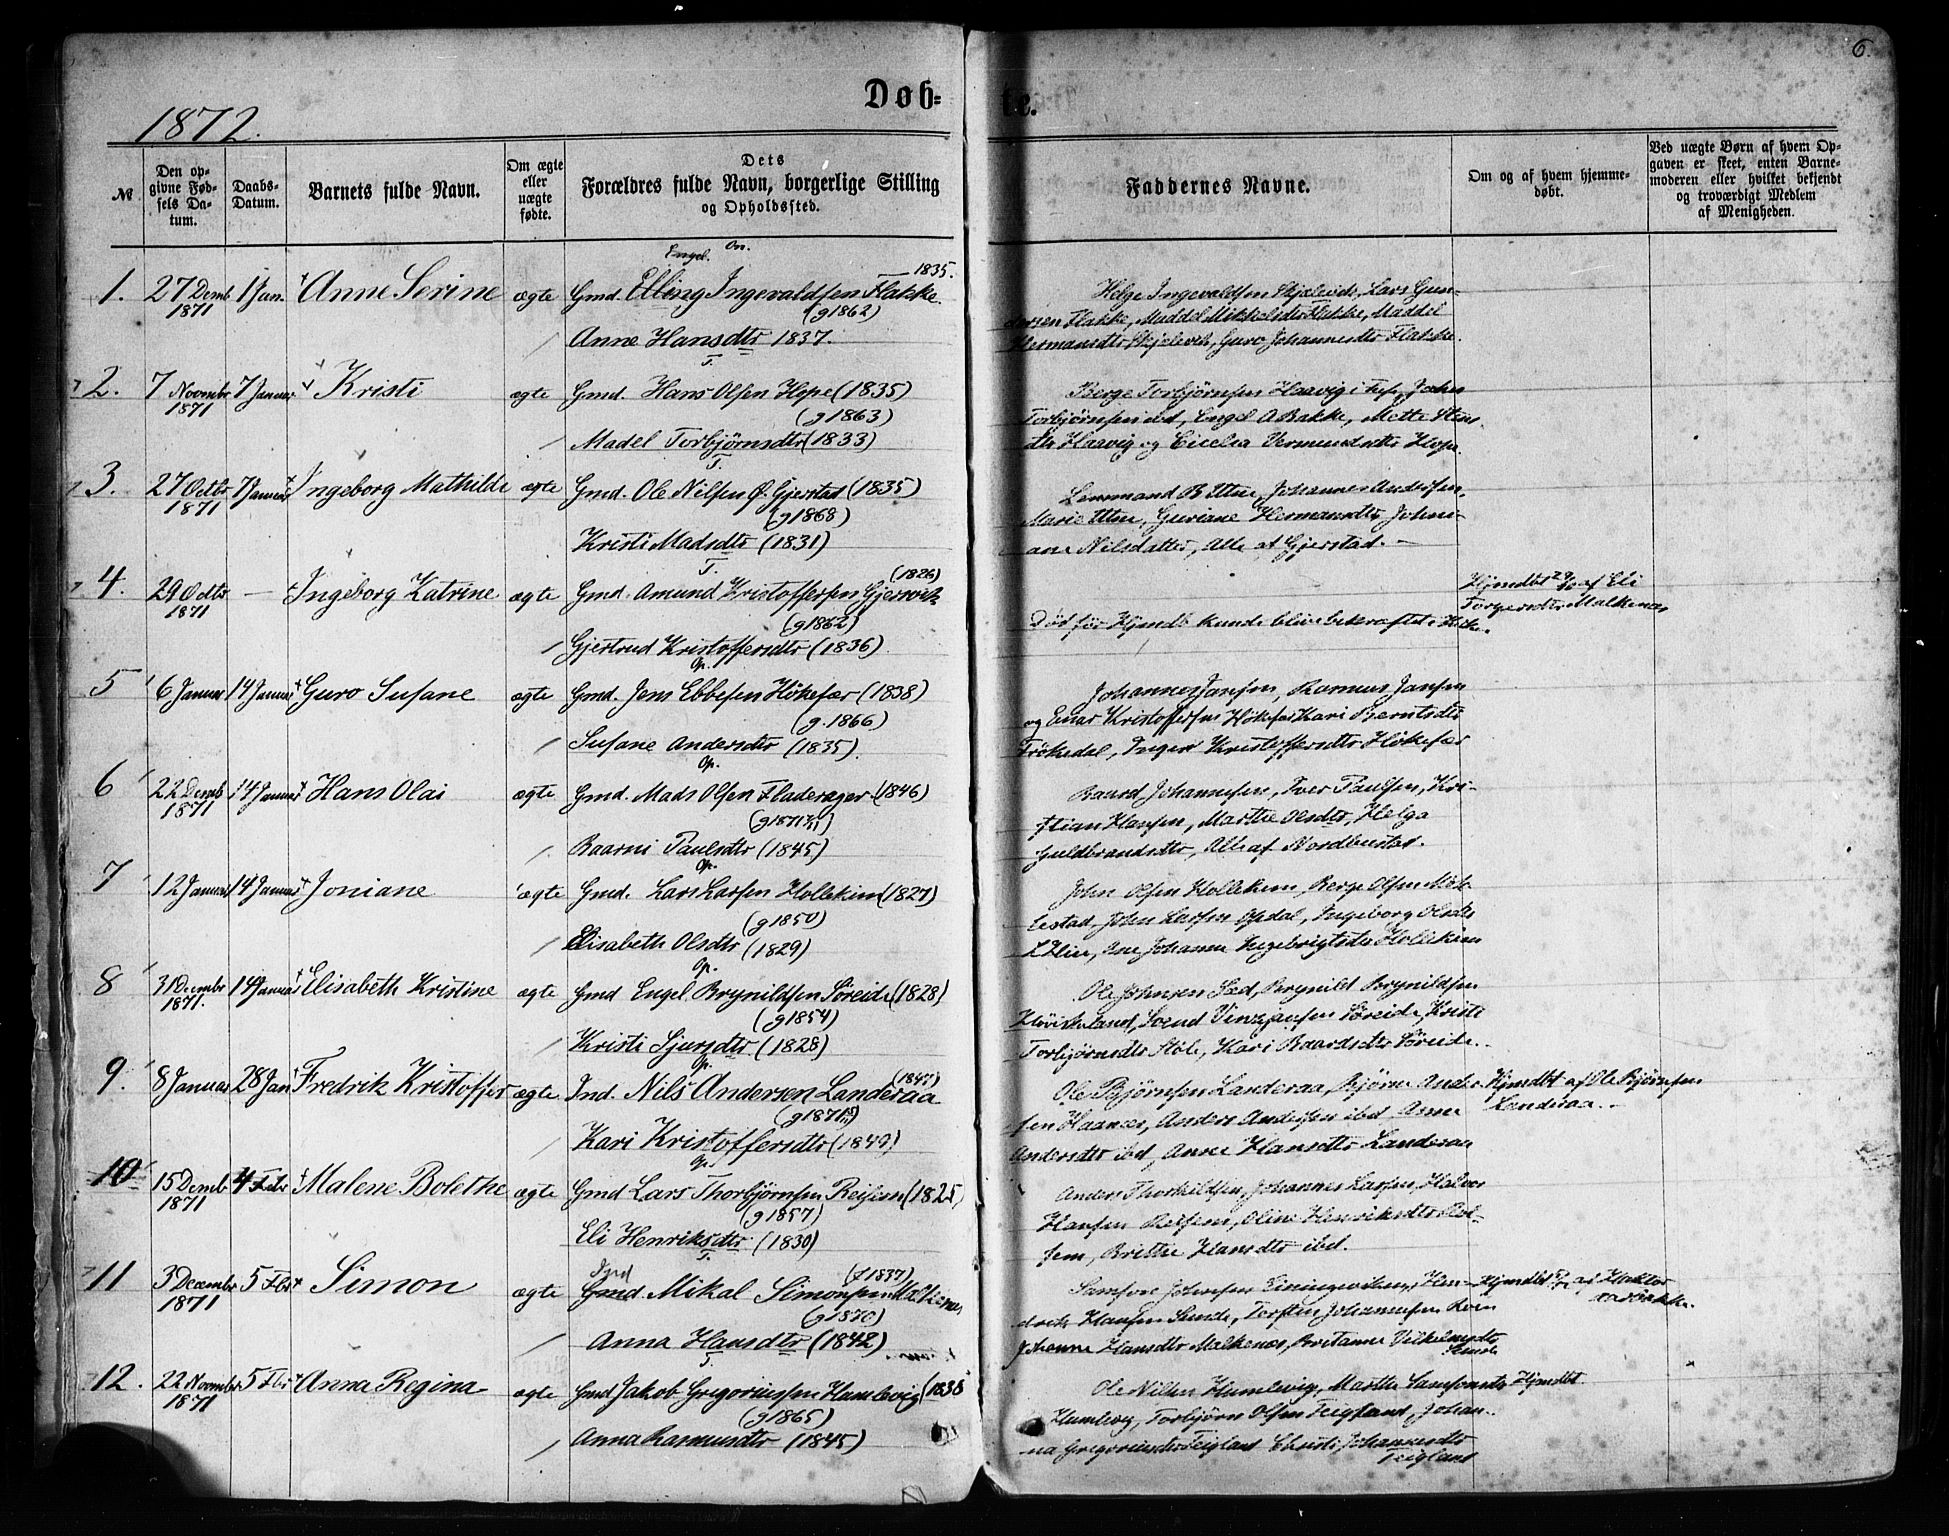 6.
Døbte.
1872.
№
Den opgivne Fødsels Datum.
Daabs-Datum.
Barnets fulde Navn.
Om ægte eller uægte fødte.
Dets Forældres fulde Navn, borgerlige Stilling og Opholdssted.
Faddernes Navne.
Om og af hvem hjemmedøbt.
Ved uægte Børn af hvem Opgaven er skeet, enten Barnemoderen eller hvilket bekjendt og troværdigt Medlem af Menigheden.
Engel. On.
1. 27 Demb 1871 1 Jan. Anne Serine ægte Gmd. Elling Ingevaldsen Flakke. 1835.
(g1862)
Anne Hansdtr 1837.
Helge Ingevaldsen Skjelevik, Lars Gun-
dersen Flakke, Maddel Mikkelsdtr Flakke, Maddel
Hermansdtr Skjelevik, Guro Johannesdtr Flakke.
T.
2. 7 Novmbr 1871 7 Januar Kristi ægte Gmd. Hans Olsen Hope (1835)
(g1863)
Madel Torbjørnsdtr (1833)
Berge Torbjørnsen Haavig, John
Torbjørnsen ibd, Engel A Bakke, Mette
Haavig og Cicelia Vermundsdtr Hope
T.
3. 27 Octbr 1871 7 Januar Ingeborg Mathilde ægte Gmd. Ole Nilsen Ø. Gjerstad (1835)
(g1868)
Kristi Madsdtr (1831)
Johannes Andersen,
Guriane Hermansdtr, Johni-
ane Nilsdatter, Alle af Gjerstad. —
T.
4. 29 Octbr 1871 — Ingeborg Katrine ægte Gmd. Amund Kristoffersen Gjersvik (1826)
(g1862)
Gjertrud Kristoffersdtr (1836)
Død før Hjmdb kunde blive bekræftet i Kirke.
Hjmdbt 29/10 af Eli
Torgersdtr Malkenæs
Op.
5 6 Januar 14 Januar Guro Susane ægte Gmd. Jens Ebbesen Høkefær (1838)
(g.1866)
Susane Andersdtr (1835)
Johannes Jansen, Rasmus Jansen
og Einar Kristoffersen Høkefær Kari Berntsdtr
Frøkedal, Kristoffersdtr Høkefær
Op.
6 22 Demb 1871 14 Januar Hans Olai ægte Gmd. Mads Olsen Fladerager (1846)
Baarni Paulsdtr (1845)
Baard Johannesen, Iver Paulsen, Kri-
stian Hansen, Marthe Olsdtr, Helga
Guldbrandsdtr, Alle af Nordbustad.
Op.
7 12 Januar 14 Januar Joniane ægte Gmd. Lars Larsen Hollekim (1827)
(g1850)
Elisabeth Olsdtr (1829)
John Olsen Hollekim, Berge Olsen
John Larsen Opdal, Ingeborg Olsdtr
Ane Johanne Ingebrigtsdtr Hollekim
Op.
8 31 Decembr 1871. 14 Januar Elisabeth Kristine ægte Gmd Engel Brynildsen Søreide (1828)
(g1854)
Kristi Sjursdtr (1828)
Ole Johnsen Sæd, Brynild Brynildsen
Svend Vinzjansen Søreide, Kristi
Torbjørnsdtr Støle, Kari Baardsdtr Søreide.
Op.
9. 8 Januar 28 Jan Fredrik Kristoffer ægte Ind. Nils Andersen Landeraa
Kari Kristoffersdtr (1849)
Ole Bjørnsen Landeraa, Bjørn Ander
sen Haanæs, Anders Andersen ibd Anna
Andersdtr ibd, Anne Hansdtr Landeraa
Hjmdbt af Ole Bjørnsen
Landeraa. —
Op.
10 15 Demb 1871 4 Febr Malene Bolethe ægte Gmd Lars Thorbjørnsen Reisem (1825)
(g1857)
Eli Henriksdtr (1830)
Anders Thorkildsen, Johannes Larsen, Halvor
Hansen Reisem, Oline Henriksdtr Rei-
sem, Brithe Hansdtr ibd.
T.
11 3 Decembr 1871 5 Fbr Simon ægte Gmd. Mikal Simonsen Malkenæs (f1837)
(g1870)
Anna Hansdtr (1842)
Samson Johnsen
Hansen Sunde, Torsten Johannesen
Johanne Hansdtr Malkenæs, Britanne Vilhelmsdtr
Sunde
12. 22 Novmbr 1871 5 Fbr Anna Regina ægte Gmd Jakob Gregoriussen Humlevig (1838
(g1865)
Anna Rasmusdtr (1845)
Ole Nilsen Humlevig, Marthe Samsonsdtr
Humlevig, Torbjørn Olsen Teigland, Johan-
na Gregoriusdtr Teigland Christi Johannesdtr
Teigland
Hjmdbt